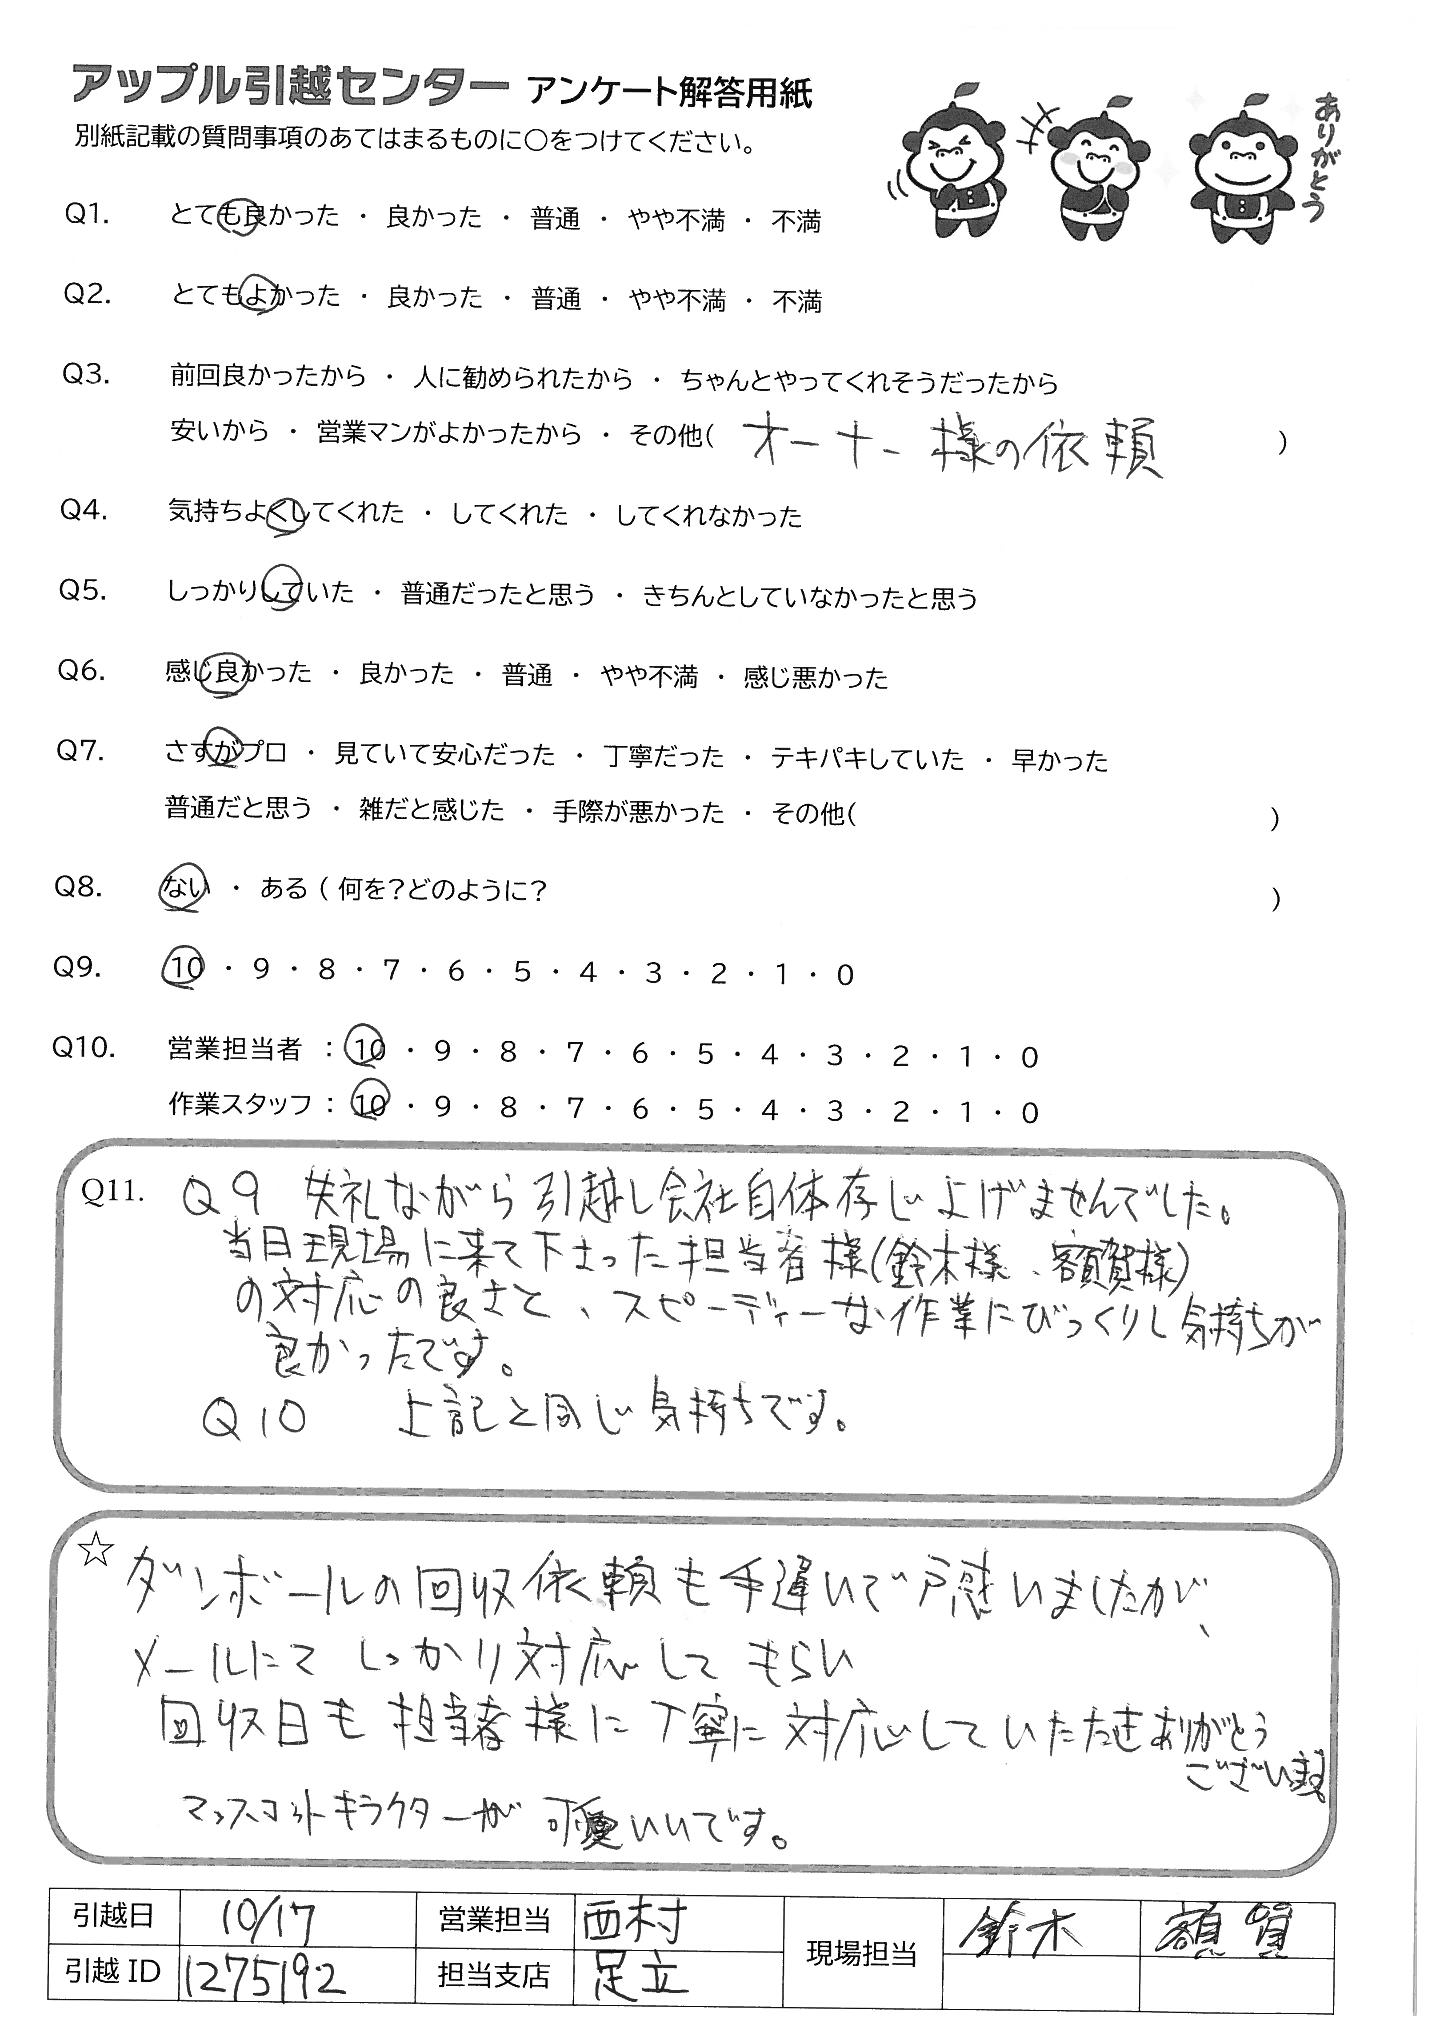 アップル引越センター アンケート解答用紙
別紙記載の質問事項のあてはまるものに○をつけてください。
ありがとう
Q1. とても良かった ・ 良かった ・ 普通 ・ やや不満 ・ 不満
Q2. とてもよかった ・ 良かった ・ 普通 ・ やや不満 ・ 不満
Q3. 前回良かったから ・ 人に勧められたから ・ ちゃんとやってくれそうだったから
安いから ・ 営業マンがよかったから ・ その他( オーナー様の依頼 )
Q4. 気持ちよくしてくれた ・ してくれた ・ してくれなかった
Q5. しっかりしていた ・ 普通だったと思う ・ きちんとしていなかったと思う
Q6. 感じ良かった ・ 良かった ・ 普通 ・ やや不満 ・ 感じ悪かった
Q7. さすがプロ ・ 見ていて安心だった ・ 丁寧だった ・ テキパキしていた ・ 早かった
普通だと思う ・ 雑だと感じた ・ 手際が悪かった ・ その他( )
Q8. ない ・ ある ( 何を?どのように? )
Q9. 10 ・ 9 ・ 8 ・ 7 ・ 6 ・ 5 ・ 4 ・ 3 ・ 2 ・ 1 ・ 0
Q10. 営業担当者 : 10 ・ 9 ・ 8 ・ 7 ・ 6 ・ 5 ・ 4 ・ 3 ・ 2 ・ 1 ・ 0
作業スタッフ : 10 ・ 9 ・ 8 ・ 7 ・ 6 ・ 5 ・ 4 ・ 3 ・ 2 ・ 1 ・ 0
Q11. Q9 失礼ながら引越し会社自体存じよげませんでした。
当日現場に来て下さった担当者様(鈴木様、額賀様)
の対応の良さと、スピーディーな作業にびっくりし気持ちが
良かったです。
Q10 上記と同じ気持ちです。
☆ ダンボールの回収依頼も手遅いで戸惑いましたが、
メールにてしっかり対応してもらい
回収日も担当者様に丁寧に対応していただきありがとう
ございます。
マスコットキラクターが可愛いいです。
引越日 10/17 営業担当 西村 現場担当 鈴木 額賀
引越ID 1275192 担当支店 足立